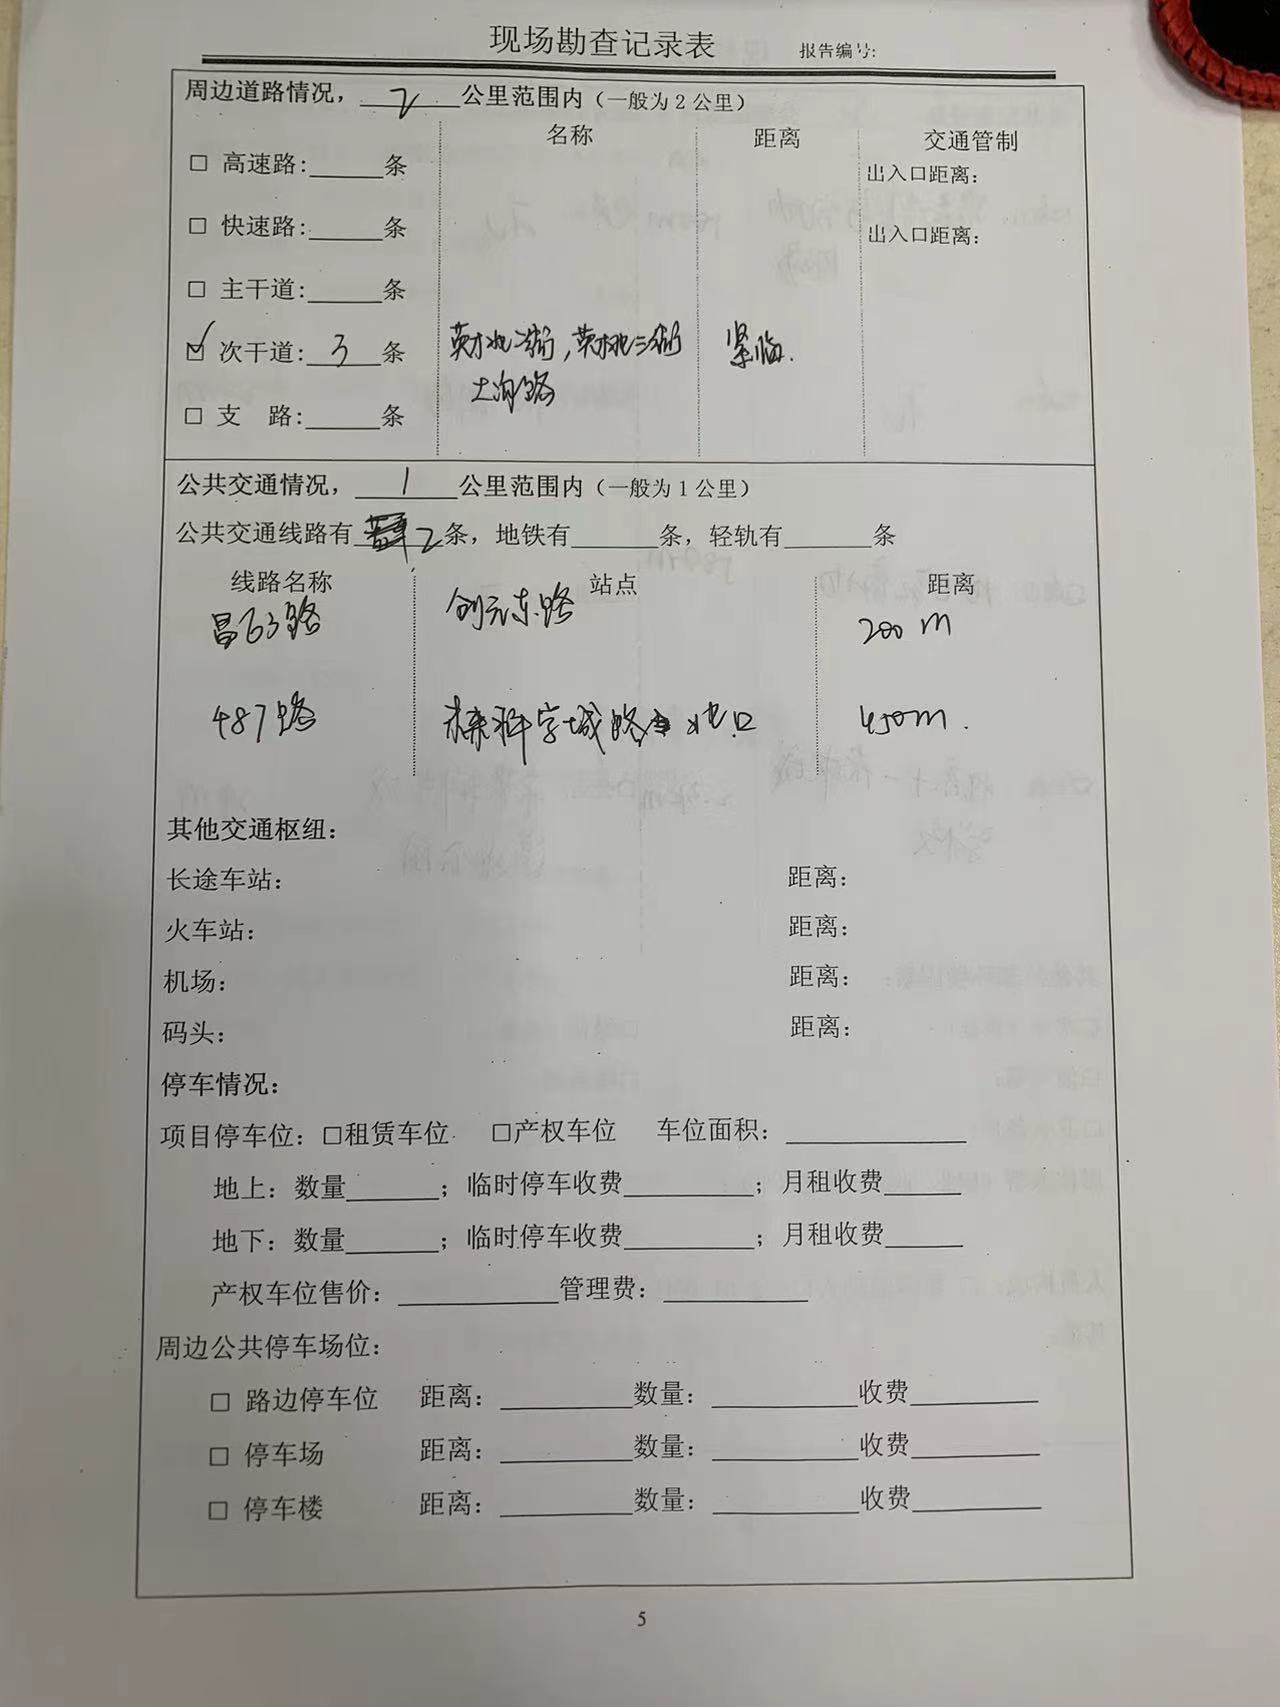 现场勘查记录表 报告编号:
周边道路情况， 2 公里范围内（一般为2公里）
名称 距离 交通管制
□ 高速路:______条 出入口距离:
□ 快速路:______条 出入口距离:
□ 主干道:______条
☑ 次干道: 3 条 英才北二街，英才北三街 紧临.
土沟路
□ 支 路:______条
公共交通情况， 1 公里范围内（一般为1公里）
公共交通线路有 2 条，地铁有______条，轻轨有______条
线路名称 站点 距离
昌63路 创元东路 200m
487路 未来科学城路北口 450m.
其他交通枢纽:
长途车站: 距离:
火车站: 距离:
机场: 距离:
码头: 距离:
停车情况:
项目停车位: □租赁车位 □产权车位 车位面积:____________
地上: 数量______; 临时停车收费_________; 月租收费_____
地下: 数量______; 临时停车收费_________; 月租收费_____
产权车位售价: ___________管理费: __________
周边公共停车场位:
□ 路边停车位 距离: _________数量: __________收费_________
□ 停车场 距离: _________数量: __________收费_________
□ 停车楼 距离: _________数量: __________收费_________
5